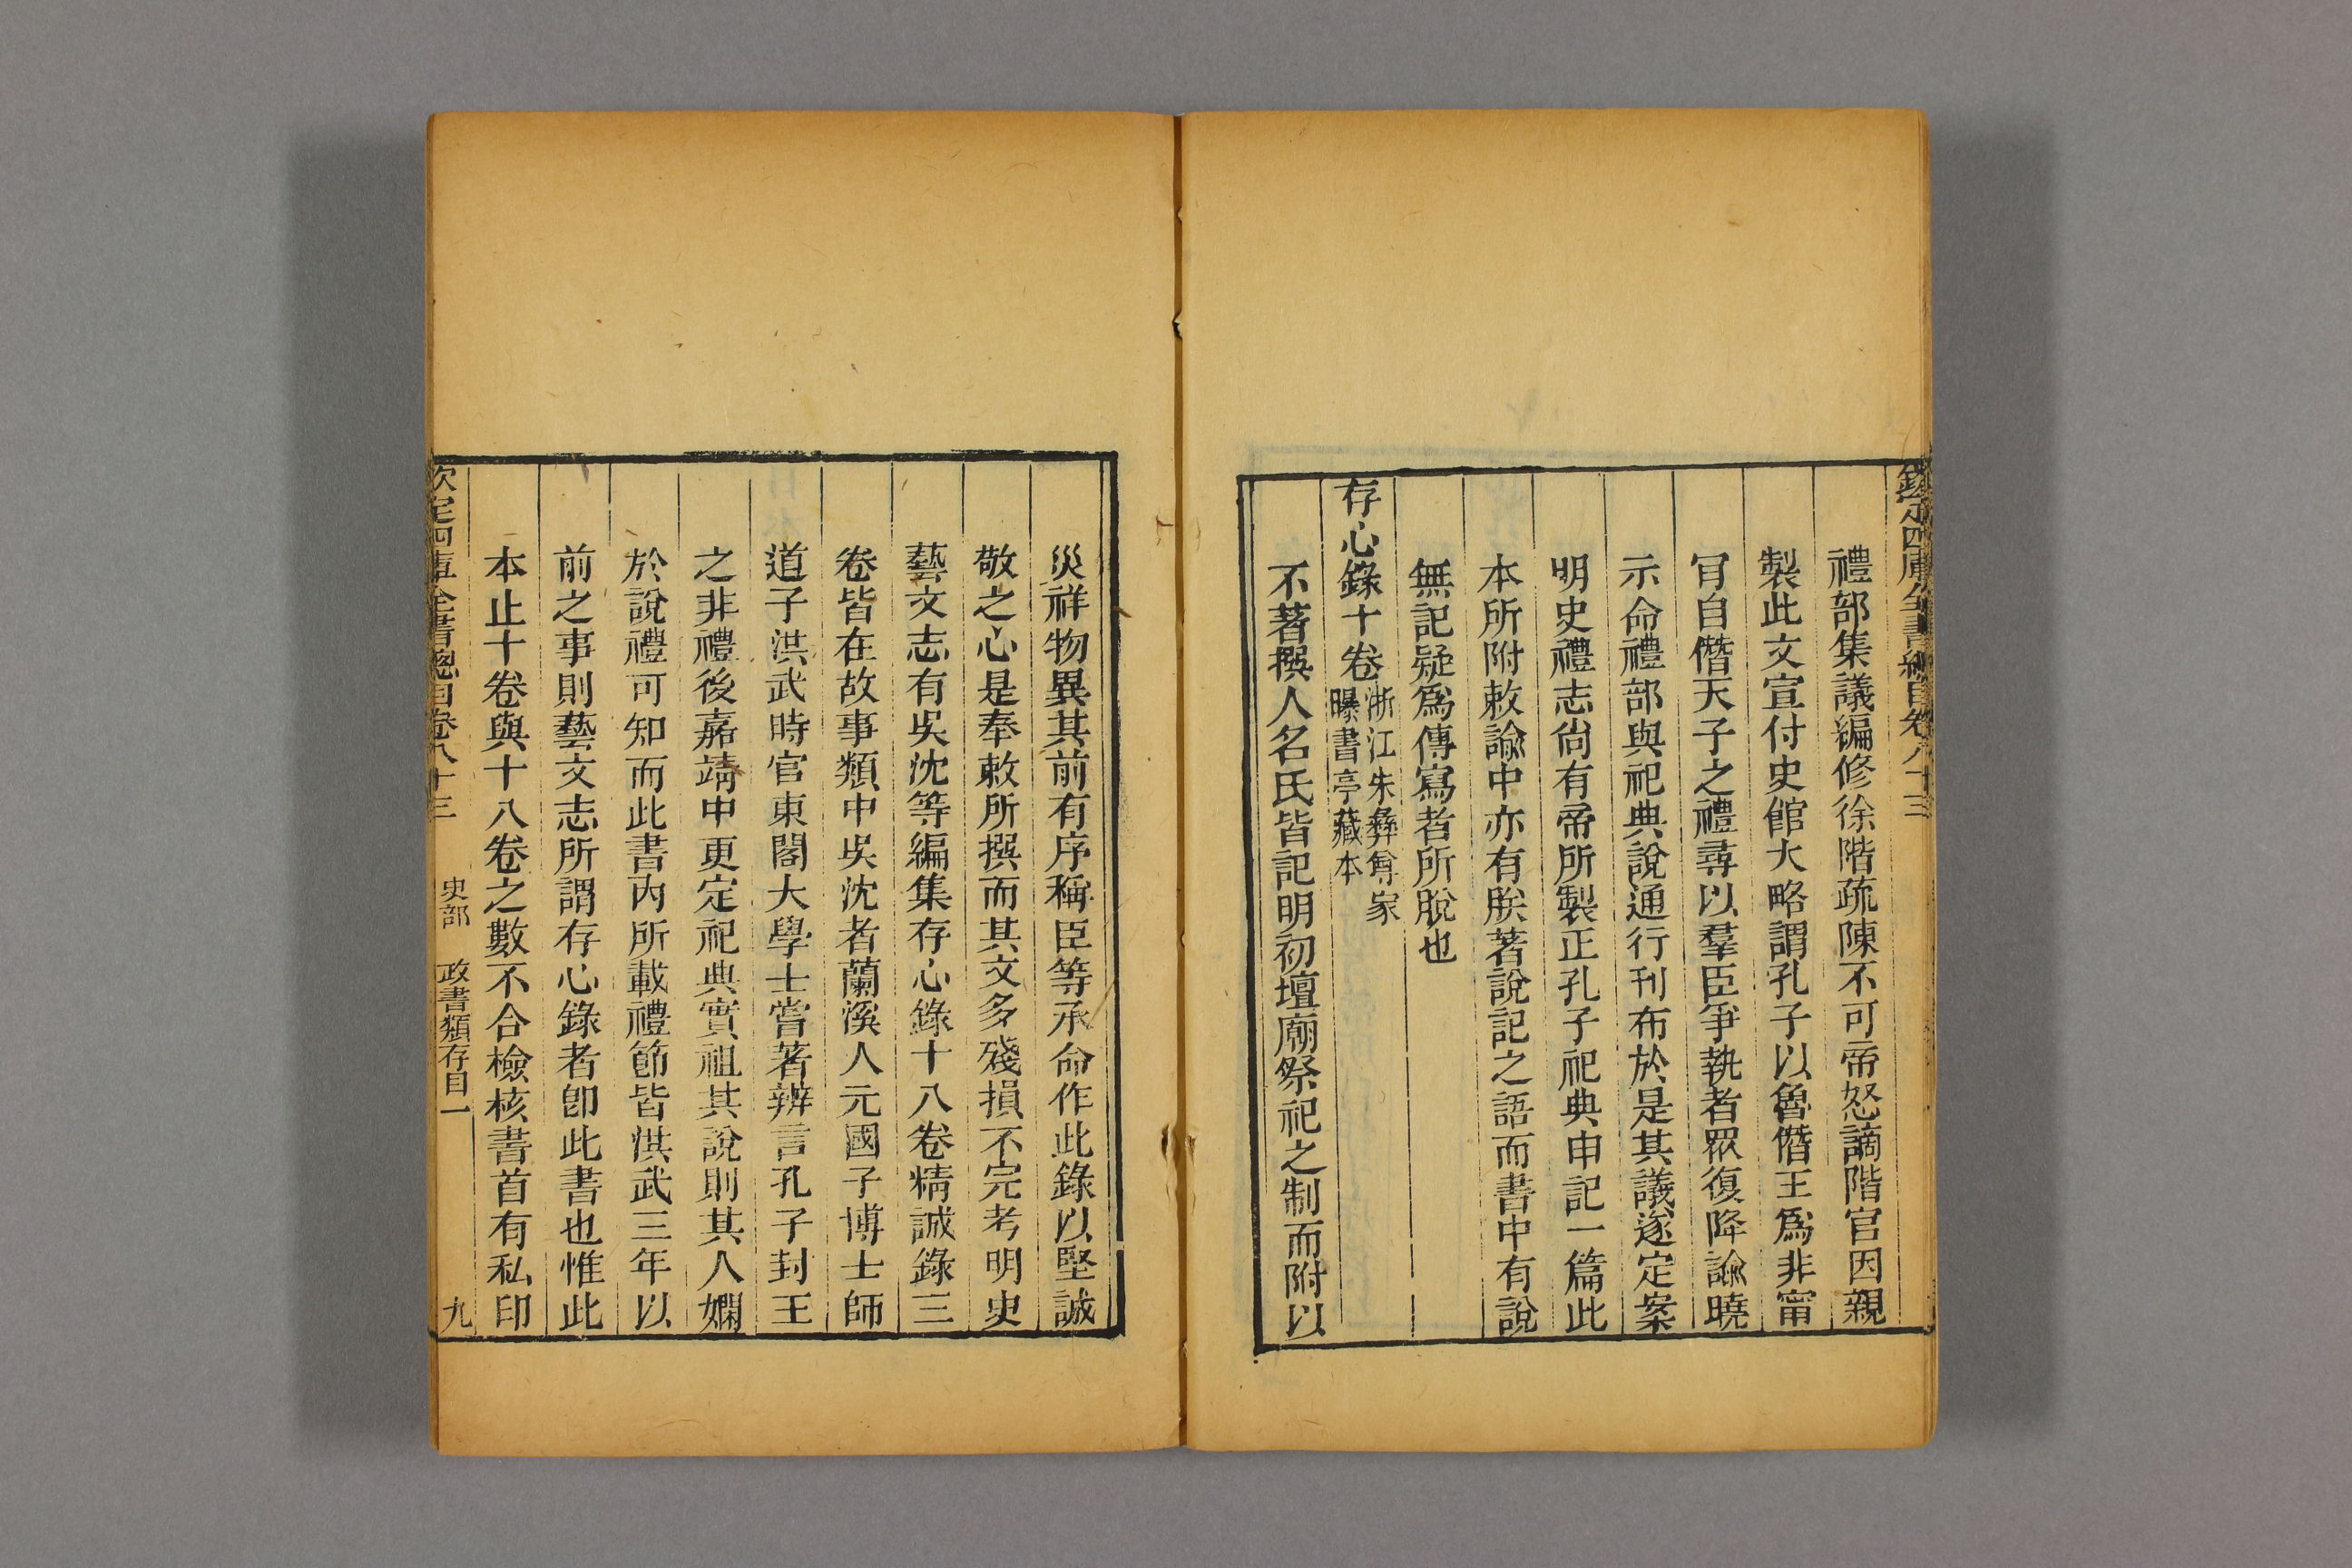 欽定四庫全書總目卷八十三
禮部集議編修徐階疏陳不可帝怒謫階官因親
製此文宣付史館大略謂孔子以魯僭王爲非甯
肎自僭天子之禮尋以羣臣爭執者眾復降諭曉
示命禮部與祀典說通行刊布於是其議遂定案
明史禮志尙有帝所製正孔子祀典申記一篇此
本所附敕諭中亦有朕著說記之語而書中有說
無記疑爲傳寫者所脫也
存心錄十卷浙江朱彝尊家曝書亭藏本
不著撰人名氏皆記明初壇廟祭祀之制而附以
災祥物異其前有序稱臣等承命作此錄以堅誠
敬之心是奉敕所撰而其文多殘損不完考明史
藝文志有吳沈等編集存心錄十八卷精誠錄三
卷皆在故事類中吳沈者蘭溪人元國子博士師
道子洪武時官東閣大學士嘗著辨言孔子封王
之非禮後嘉靖中更定祀典實祖其說則其人嫻
於說禮可知而此書內所載禮節皆洪武三年以
前之事則藝文志所謂存心錄者卽此書也惟此
本止十卷與十八卷之數不合檢核書首有私印
欽定四庫全書總目卷八十三 史部 政書類存目一 九